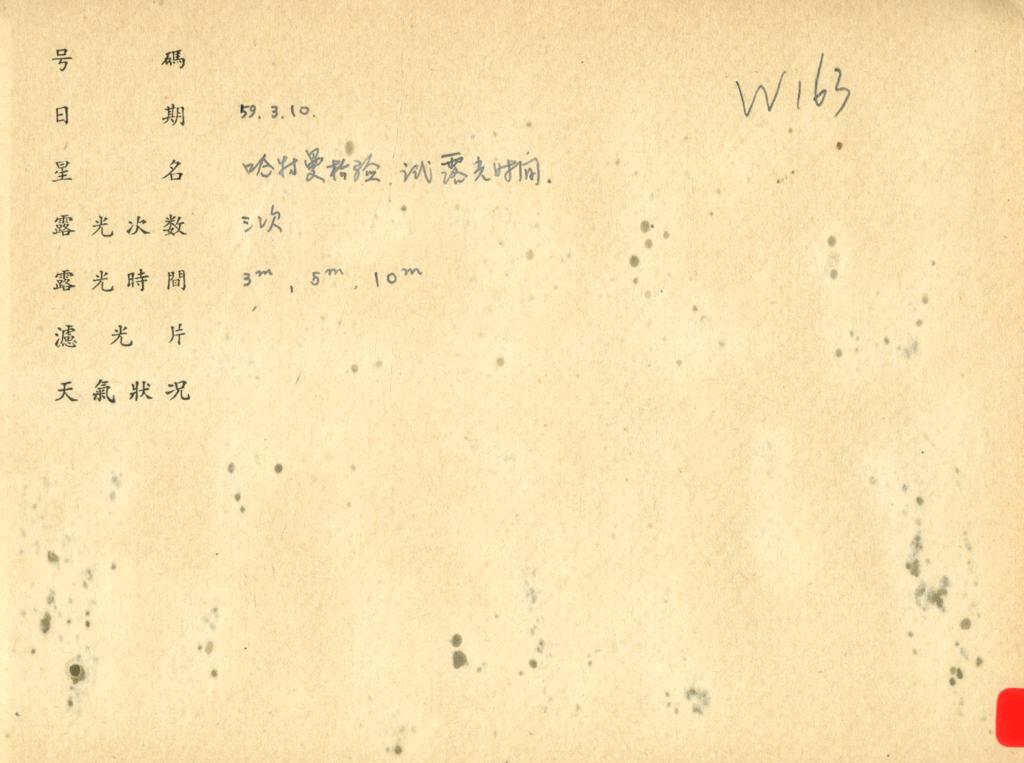 号碼
W163
日期 59.3.10.
星名 哈特曼检验 试露光时间.
露光次数 三次
露光時間 3m, 5m, 10m
濾光片
天氣狀况